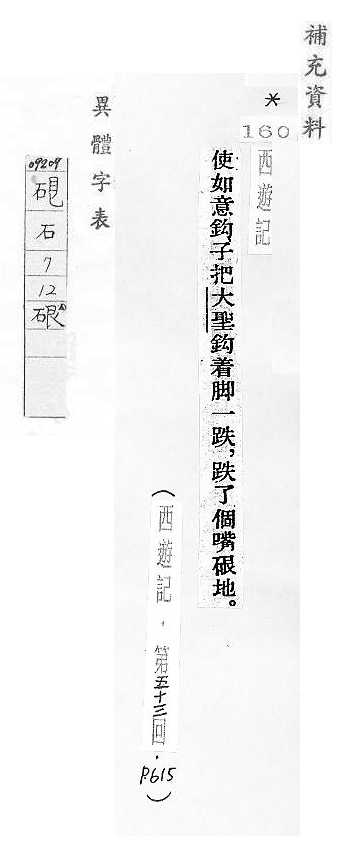 補充資料
*
160
西遊記
使如意鈎子把大聖鈎着脚一跌，跌了個嘴硍地。
（西遊記．第五十三回．P.615）
異體字表
09209
石
7
12
硍